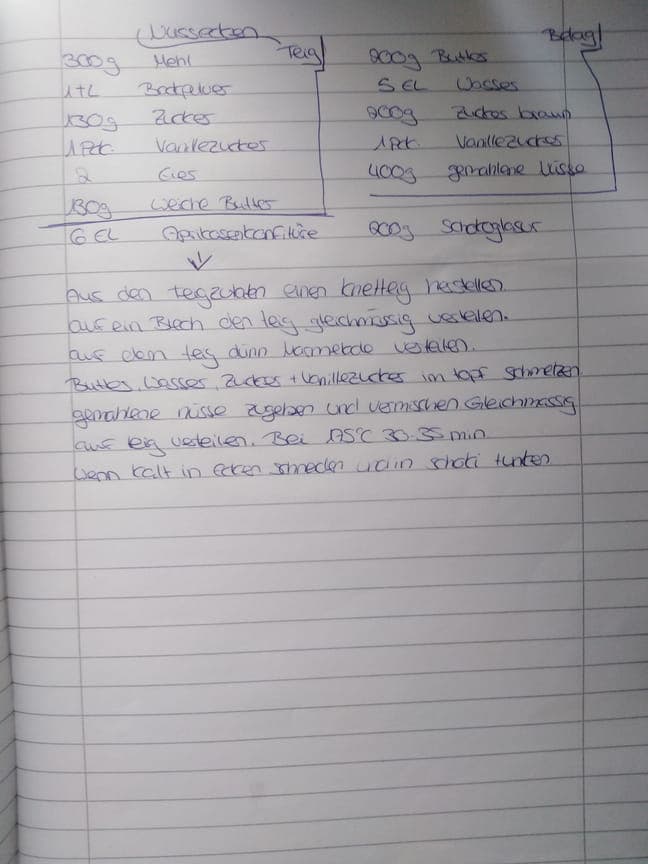 Nussecken
Teig
300g Mehl
1TL Backpulver
130g Zucker
1Pck. Vanillezucker
2 Eier
130g weiche Butter
6 EL Aprikosenkonfitüre
Belag
200g Butter
5 EL Wasser
200g Zucker braun
1Pck. Vanillezucker
400g gemahlene Nüsse
200g Schokoglasur
Aus den Teigzutaten einen Knetteig herstellen.
auf ein Blech den Teig gleichmässig verteilen.
auf dem Teig dünn Marmelade verteilen.
Butter, Wasser, Zucker + Vanillezucker im Topf schmelzen
gemahlene nüsse zugeben und vermischen Gleichmässig
auf eig verteilen. Bei 175°C 30-35 min
Wenn kalt in Ecken schneiden in Schoki tunken